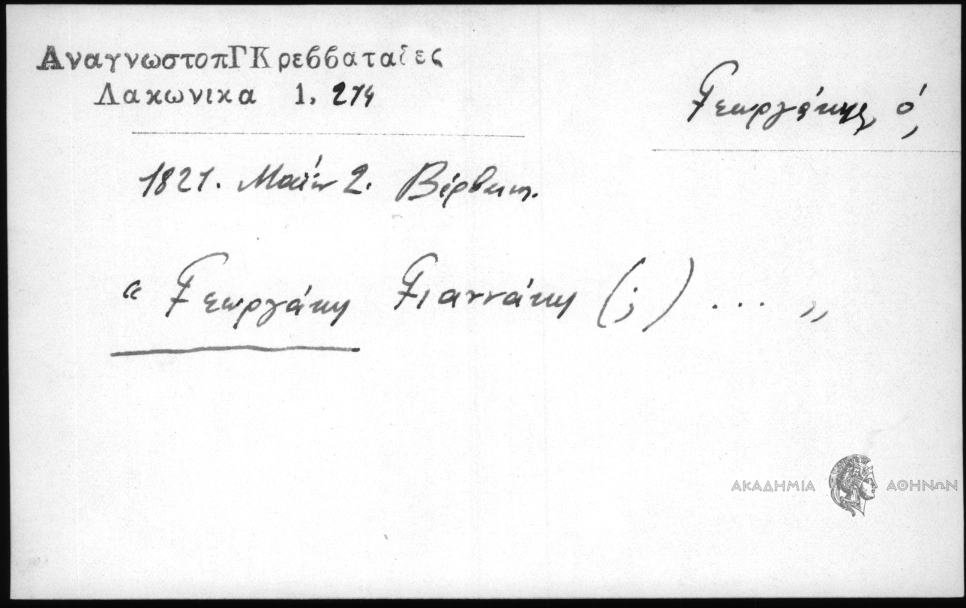 ΑναγνωστοπΓΚρεββαταδες
Λακωνικα 1, 274
Γεωργάκης, ὁ,
1821. Μαΐου 2. Βέρβενα.
“ Γεωργάκη Γιαννάκη (;) ... „
ΑΚΑΔΗΜΙΑ ΑΘΗΝΩΝ